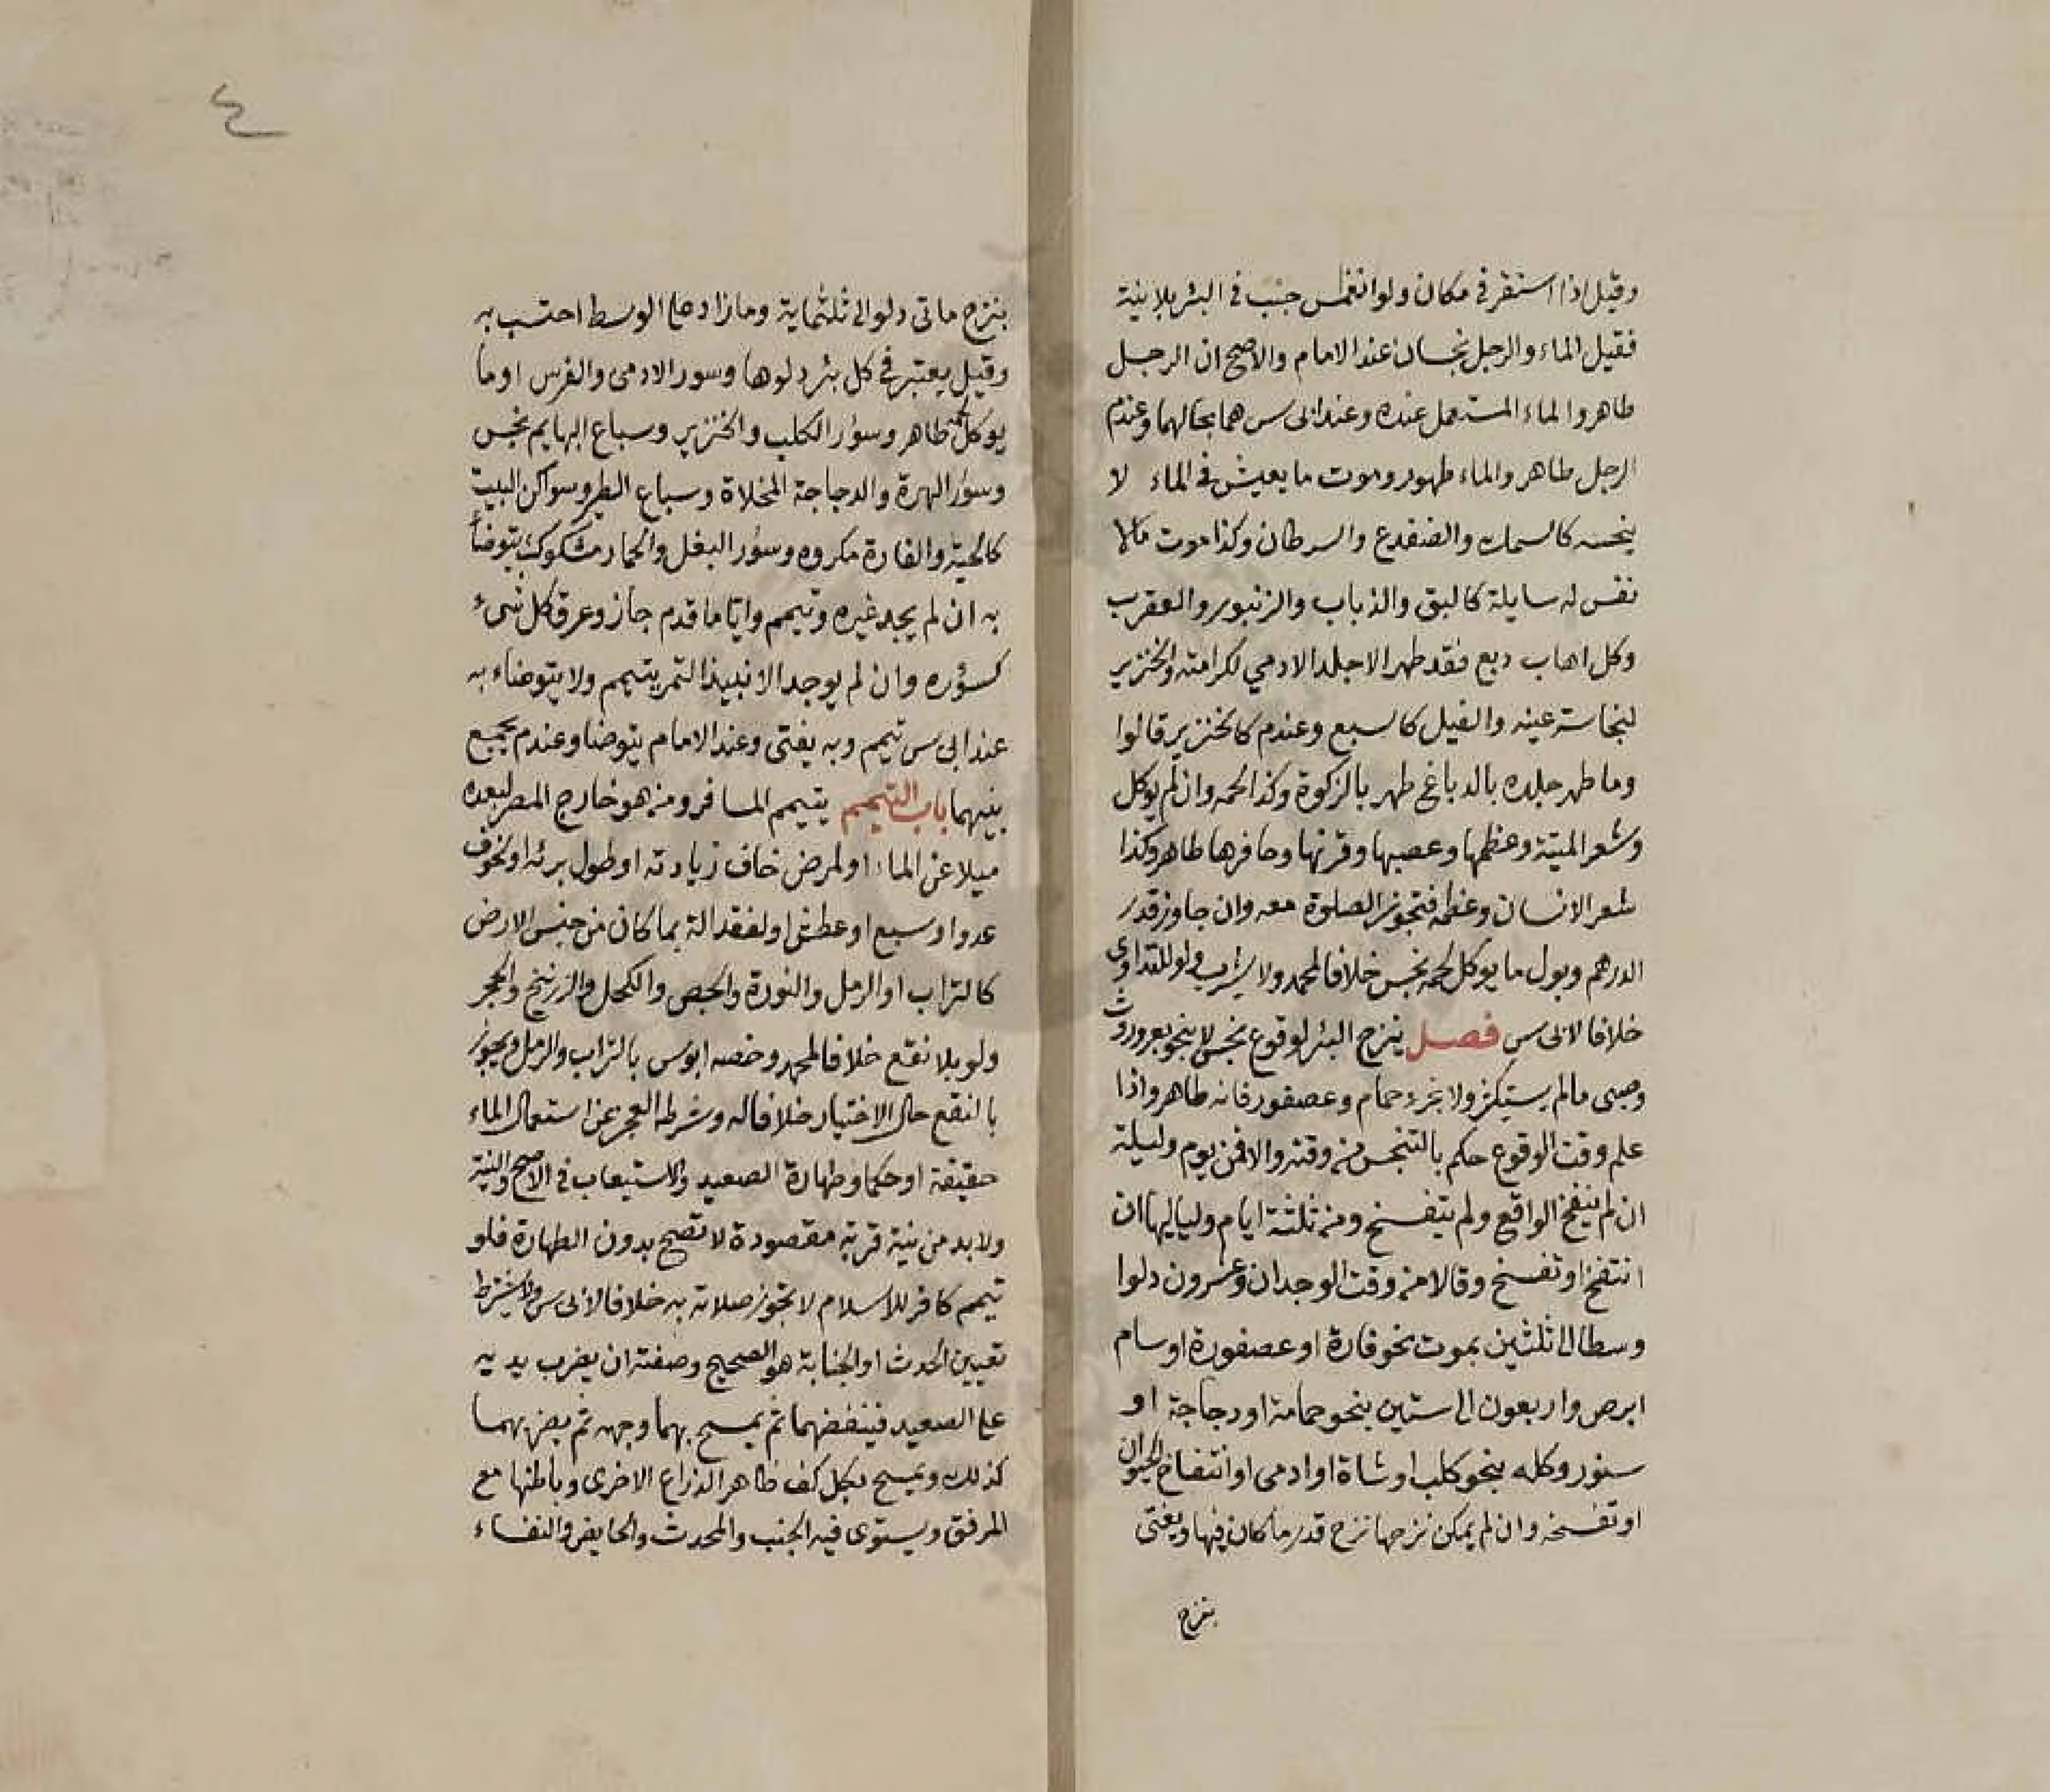 وقيل اذا استقر في مكان ولو انغمس جنب في البئر بلا نية
فقيل الماء والرجل نجسان عند الامام والاصح ان الرجل
طاهر والماء المستعمل عنده وعند ابى س هما بحالهما وعندم
الرجل طاهر والماء طهور وموت ما يعيش في الماء لا
ينجسه كالسمك والضفدع والسرطان وكذا موت مالا
نفس له سايلة كالبق والذباب والزنبور والعقرب
وكل اهاب دبع فقد طهر الا جلد الادمي لكرامته والخنزير
لنجاسة عينه والفيل كالسبع وعندم كالخنزير قالوا
وما طهر جلده بالدباغ طهر بالزكوة وكذا لحمه وان لم يوكل
وشعر الميتة وعظمها وعصبها وقرنها وحافرها طاهر وكذا
شعر الانسان وعظمه فتجوز الصلوة معه وان جاوز قدر
الدرهم وبول ما يوكل لحمه نجس خلافا لمحمد ولا يشرب ولو للتداوى
خلافا لابى س فصل ينزح البئر لوقوع نجس لا بنحو بعر وروث
وصبى مالم يستكثر ولا بخرء حمام وعصفور فانه طاهر واذا
علم وقت الوقوع حكم بالتنجس من وقته والا فمن يوم وليلة
ان لم ينتفخ الواقع ولم يتفسخ ومن ثلثة ايام ولياليها ان
انتفخ او تفسخ وقالا من وقت الوجدان وعشرون دلوا
وسطا الى ثلثين بموت نحو فارة او عصفورة او سام
ابرص واربعون الى ستين بنحو حمامة او دجاجة او
سنور وكله بنحو كلب او شاة او ادمى او انتفاخ الحيوان
او تفسخه وان لم يمكن نزحها نزح قدر ما كان فيها ويفتى
بنزح
٤
بنزح ماتى دلو الى ثلثماية وما زاد على الوسط احتسب به
وقيل يعتبر في كل بئر دلوها وسور الادمى والفرس او ما
يوكل لحمه طاهر وسور الكلب والخنزير وسباع البهايم نجس
وسور الهرة والدجاجة المخلاة وسباع الطير وسواكن البيت
كالحية والفارة مكروه وسور البغل والحمار مشكوك يتوضأ
به ان لم يجد غيره وتيمم وايا ما قدم جاز وعرق كل شىء
كسؤره وان لم يوجد الا نبيذ التمر يتيمم ولا يتوضاء به
عند ابى س تيمم وبه يفتى وعند الامام يتوضا وعندم يجمع
بينهما باب التيمم يتيمم المسافر ومن هو خارج المصر لبعده
ميلا عن الماء او لمرض خاف زيادته او طول برئه او لخوف
عدو او سبع او عطش او لفقد الة بما كان من جنس الارض
كالتراب او الرمل والنورة والجص والكحل والزرنيخ والحجر
ولو بلا نقع خلافا لمحمد وخصه ابوس بالتراب والرمل ويجوز
بالنقع حال الاختيار خلافا له وشرطه العجز عن استعمال الماء
حقيقة او حكما وطهارة الصعيد والاستيعاب في الاصح والنية
ولا بد من نية قربة مقصودة لا تصح بدون الطهارة فلو
تيمم كافر للاسلام لا تجوز صلاته به خلافا لابى س ولا يشترط
تعيين الحدث او الجنابة هو الصحيح وصفته ان يضرب يديه
على الصعيد فينفضهما ثم يمسح بهما وجهه ثم يضربهما
كذلك ويمسح بكل كف ظاهر الذراع الاخرى وباطنها مع
المرفق ويستوى فيه الجنب والمحدث والحايض والنفساء